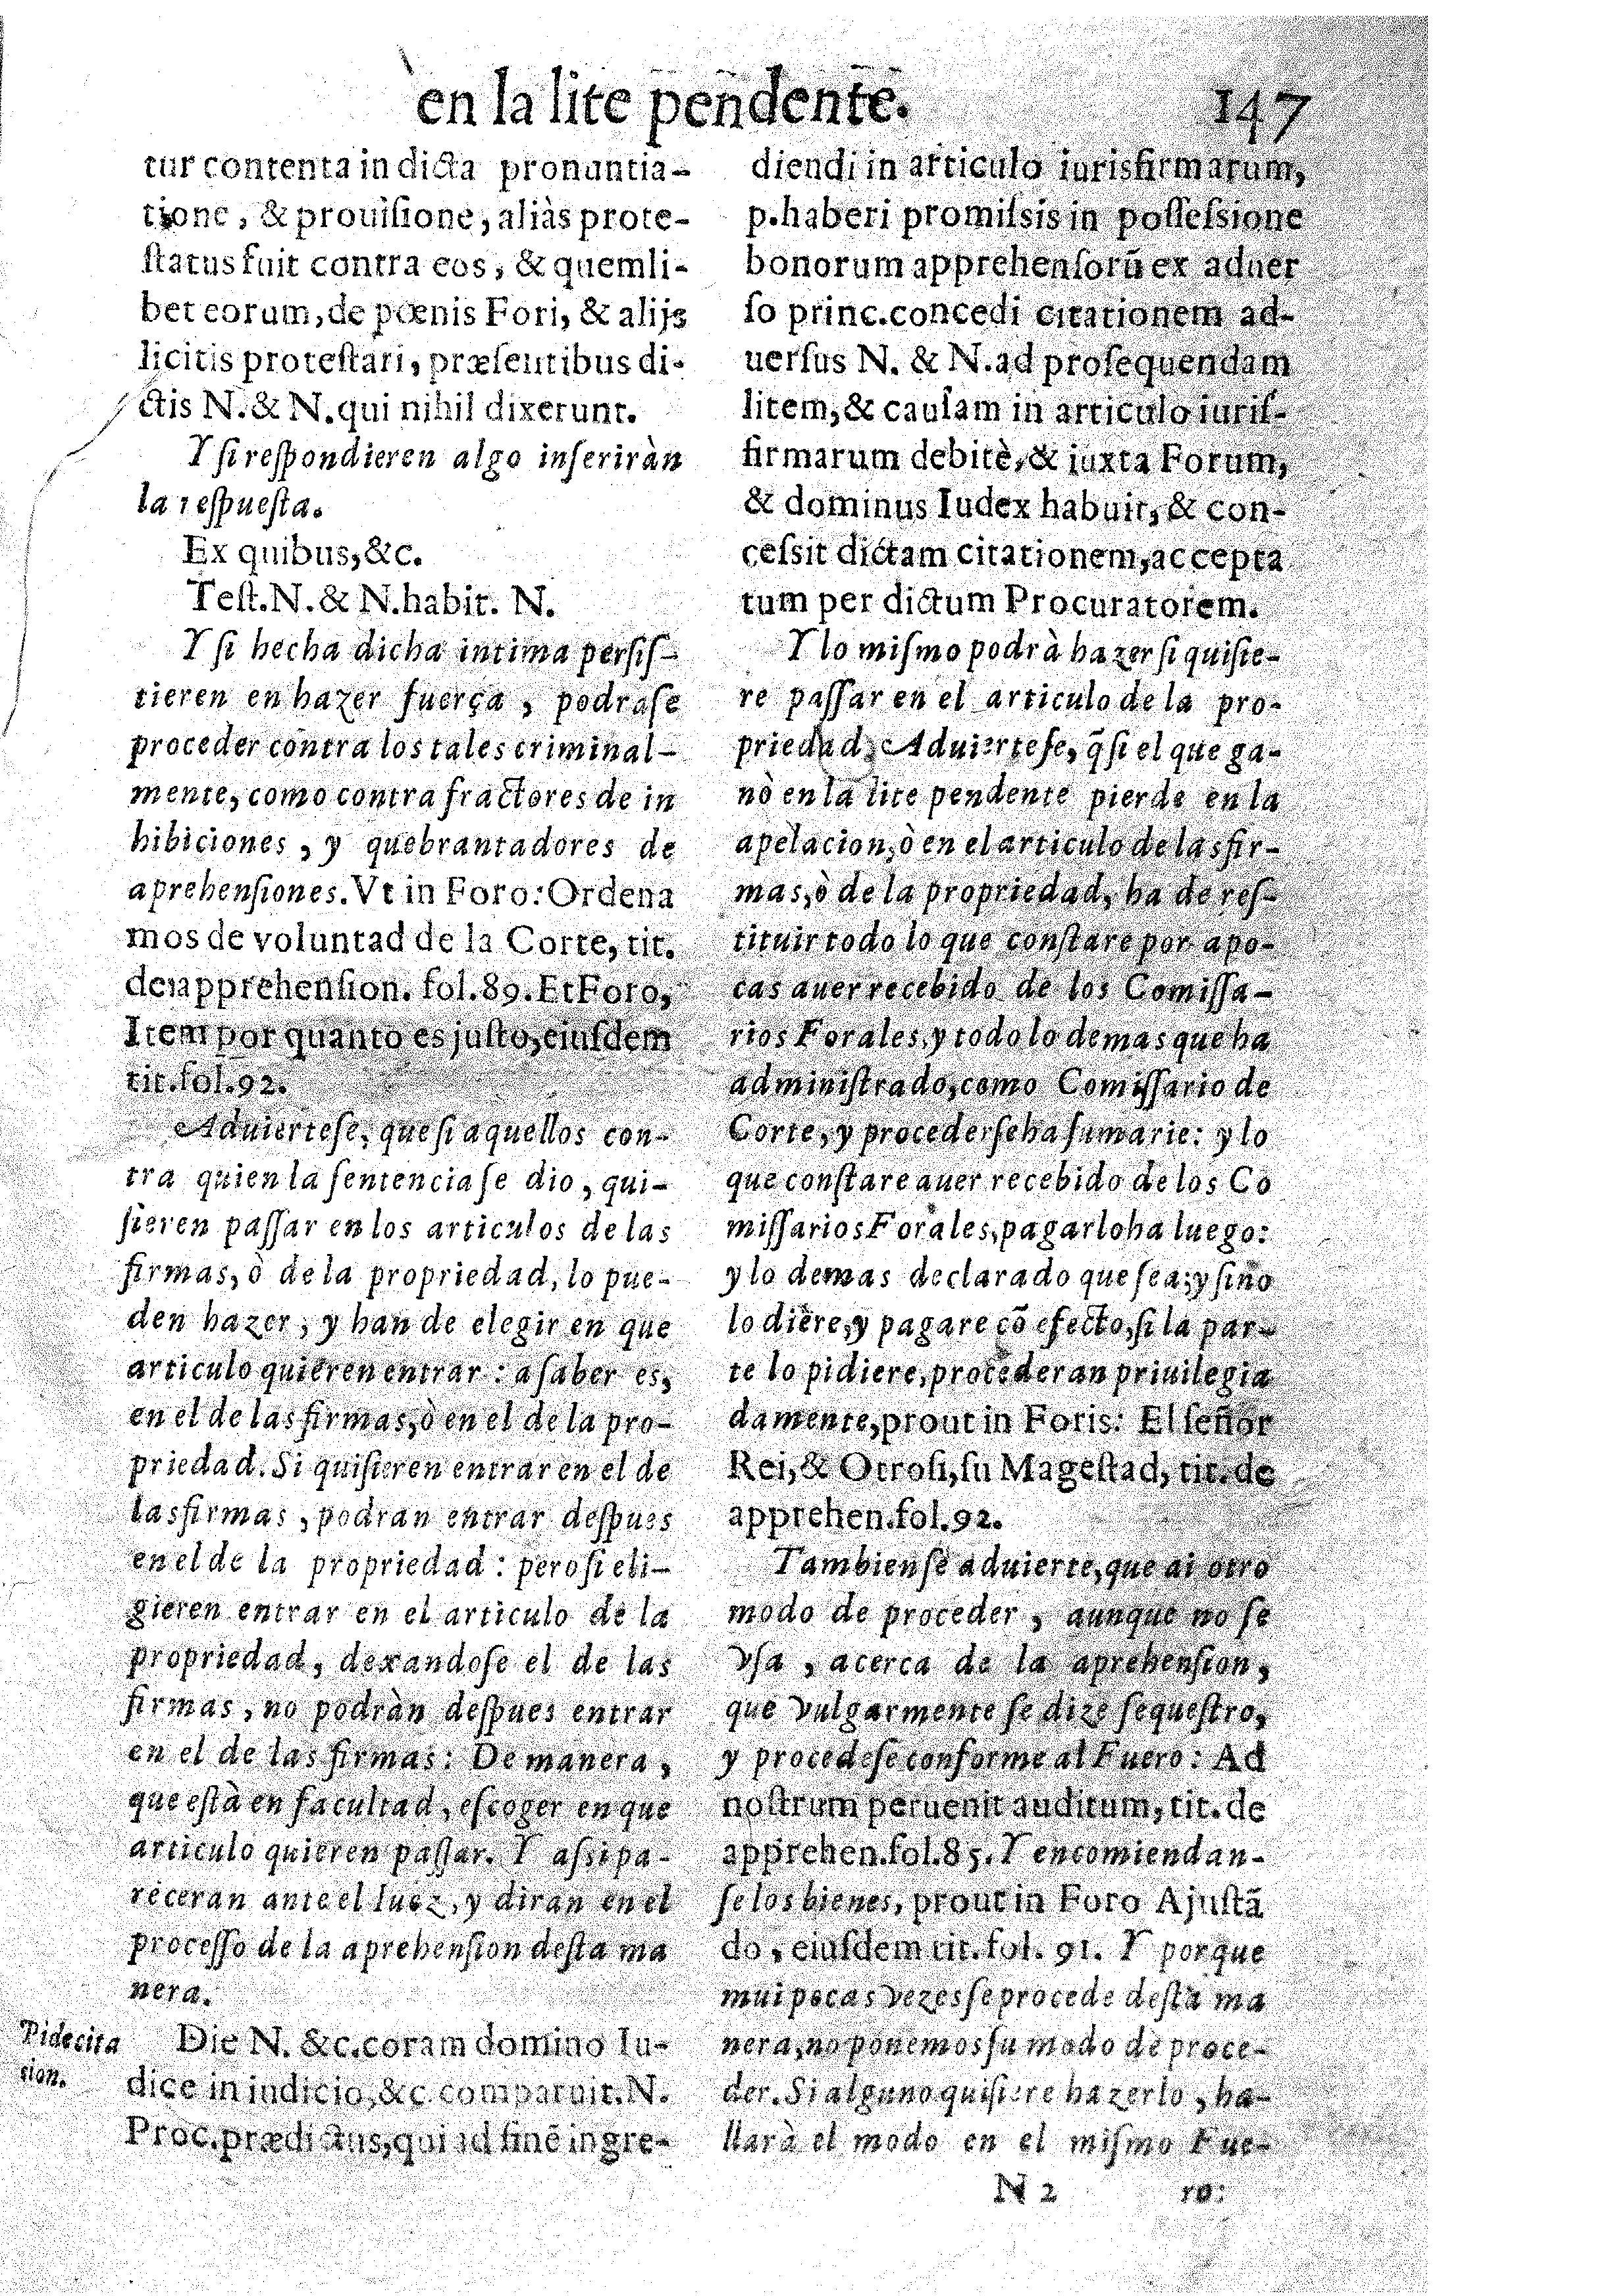 en la lite pendente. 147
tur contenta in dicta pronuntia-
tione, & prouisione, aliàs prote-
status fuit contra eos, & quemli-
bet eorum, de pœnis Fori, & alijs
licitis protestari, præsentibus di-
ctis N. & N. qui nihil dixerunt.
Y si respondieren algo inseriràn
la respuesta.
Ex quibus, &c.
Test. N. & N. habit. N.
Y si hecha dicha intima persis-
tieren en hazer fuerça, podrase
proceder contra los tales criminal-
mente, como contra fractores de in
hibiciones, y quebrantadores de
aprehensiones. Vt in Foro: Ordena
mos de voluntad de la Corte, tit.
de apprehension. fol. 89. Et Foro,
Item por quanto es justo, eiusdem
tit. fol. 92.
Aduiertese, que si aquellos con-
tra quien la sentencia se dio, qui-
sieren passar en los articulos de las
firmas, ò de la propriedad, lo pue-
den hazer, y han de elegir en que
articulo quieren entrar: a saber es,
en el de las firmas, ò en el de la pro-
priedad. Si quisieren entrar en el de
las firmas, podran entrar despues
en el de la propriedad: pero si eli-
gieren entrar en el articulo de la
propriedad, dexandose el de las
firmas, no podràn despues entrar
en el de las firmas: De manera,
que està en facultad, escoger en que
articulo quieren passar. Y assi pa-
receran ante el Iuez, y diran en el
processo de la aprehension desta ma
nera.
Pide cita
cion.
Die N. &c. coram domino Iu-
dice in iudicio, &c. comparuit. N.
Proc. prædictus, qui ad finē ingre-
diendi in articulo iurisfirmarum,
p. haberi promissis in possessione
bonorum apprehensorū ex aduer
so princ. concedi citationem ad-
uersus N. & N. ad prosequendam
litem, & causam in articulo iuris-
firmarum debitè, & iuxta Forum,
& dominus Iudex habuit, & con-
cessit dictam citationem, accepta
tum per dictum Procuratorem.
Y lo mismo podrà hazer si quisie-
re passar en el articulo de la pro-
priedad. Aduiertese, q̃ si el que ga-
nò en la lite pendente pierde en la
apelacion, ò en el articulo de las fir-
mas, ò de la propriedad, ha de res-
tituir todo lo que constare por apo-
cas auer recebido de los Comissa-
rios Forales, y todo lo demas que ha
administrado, como Comissario de
Corte, y procederseha sumarie: y lo
que constare auer recebido de los Co
missarios Forales, pagarloha luego:
y lo demas declarado que sea; y sino
lo diere, y pagare cō efecto, si la par-
te lo pidiere, procederan priuilegia
damente, prout in Foris: El señor
Rei, & Otrosi, su Magestad, tit. de
apprehen. fol. 92.
Tambien se aduierte, que ai otro
modo de proceder, aunque no se
vsa, acerca de la aprehension,
que vulgarmente se dize sequestro,
y procedese conforme al Fuero: Ad
nostrum peruenit auditum, tit. de
apprehen. fol. 85. Y encomiendan-
se los bienes, prout in Foro Ajustā
do, eiusdem tit. fol. 91. Y porque
mui pocas vezes se procede desta ma
nera, no ponemos su modo de proce-
der. Si alguno quisiere hazerlo, ha-
llarà el modo en el mismo Fue-
N 2 ro: